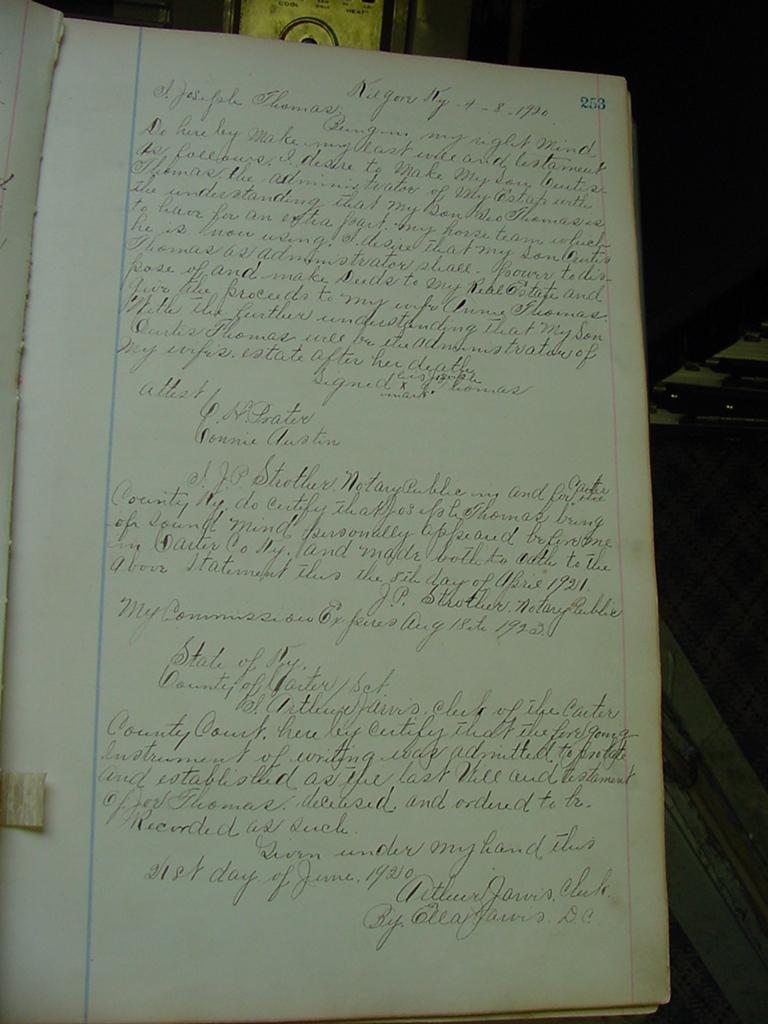 COOL HEAT
253
Kilgore Ky - 4 - 8 - 1920
I, Joseph Thomas, Being in my right mind
Do here by Make my last will and testament
As follows, I desire to Make My Son Curtis
Thomas, the administrator of My Estate with
the understanding that my Son Geo Thomas is
to have for an extra part my horse team which
he is now using. I desire that my son Curtis
Thomas as administrator shall power to dis-
pose of and make Deeds to My Real Estate and
give the proceeds to my wife Annie Thomas.
With the further understanding that My Son
Curtis Thomas will be the administrator of
My wifes estate after her death.
Signed his Joseph
x Thomas
mark
Attest
C. H. Prater
Connie Austin
I, J. P. Strother, Notary Public in and for the Carter
County Ky. do certify that Joseph Thomas being
of sound mind personally appeared before me
in Carter Co Ky. and made oath to the
above Statement this the 8th day of April 1921.
J. P. Strother Notary Public
My Commission Expires Aug 18th
State of Ky.
County of Carter / Sct.
I, Arthur Jarvis, clerk of the Carter
County Court, here by certify that the fore going
Instrument of writing was admitted to probate
and established as the last Will and testament
Of Joe Thomas, deceased and ordered to be
Recorded as such.
Given under my hand this
21st day of June, 1920
Arthur Jarvis, Clerk.
By Ella Jarvis D. C.